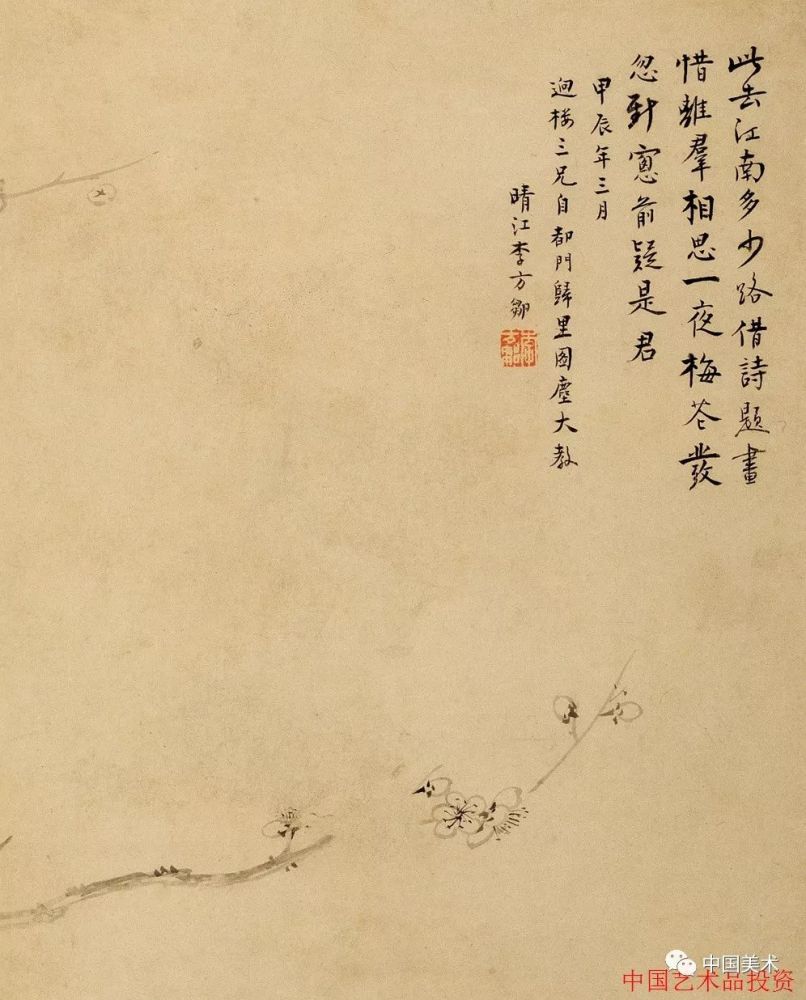 此去江南多少路借詩題畫
惜離羣相思一夜梅花發
忽到窻前疑是君
甲辰年三月
迴樓三兄自都門歸里圖塵大教
晴江李方
中国美术
中国艺术品投资